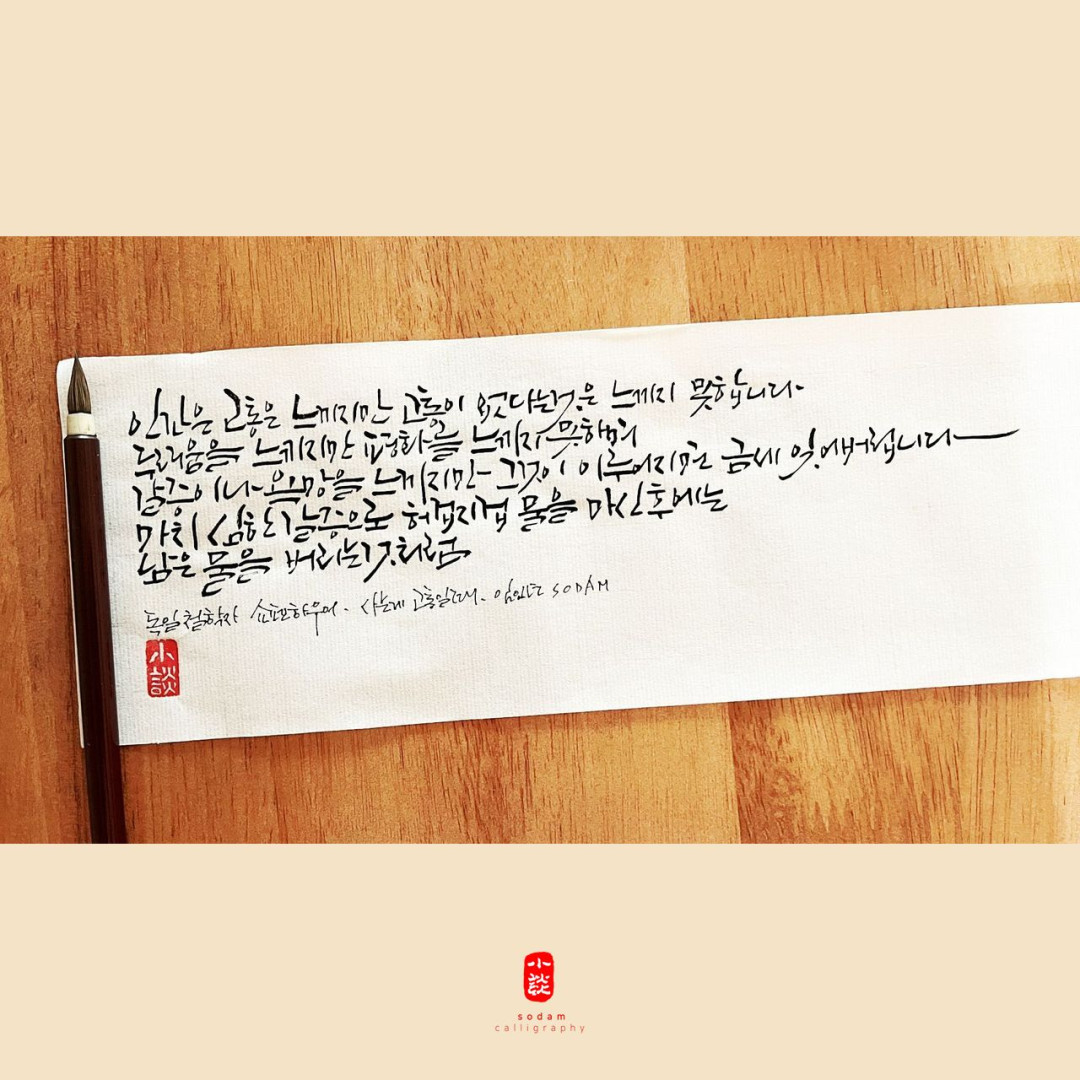 인간은 고통은 느끼지만 고통이 없다는것은 느끼지 못합니다.
두려움을 느끼지만 평화를 느끼지 못하며
갈증이나 욕망을 느끼지만 그것이 이루어지면 금세 잊어버립니다
마치 심한 갈증으로 허겁지겁 물을 마신 후에는
남은 물을 버리는 것처럼
독일철학자 쇼펜하우어. 사는게 고통일때. SODAM
小談
小談
sodam
calligraphy